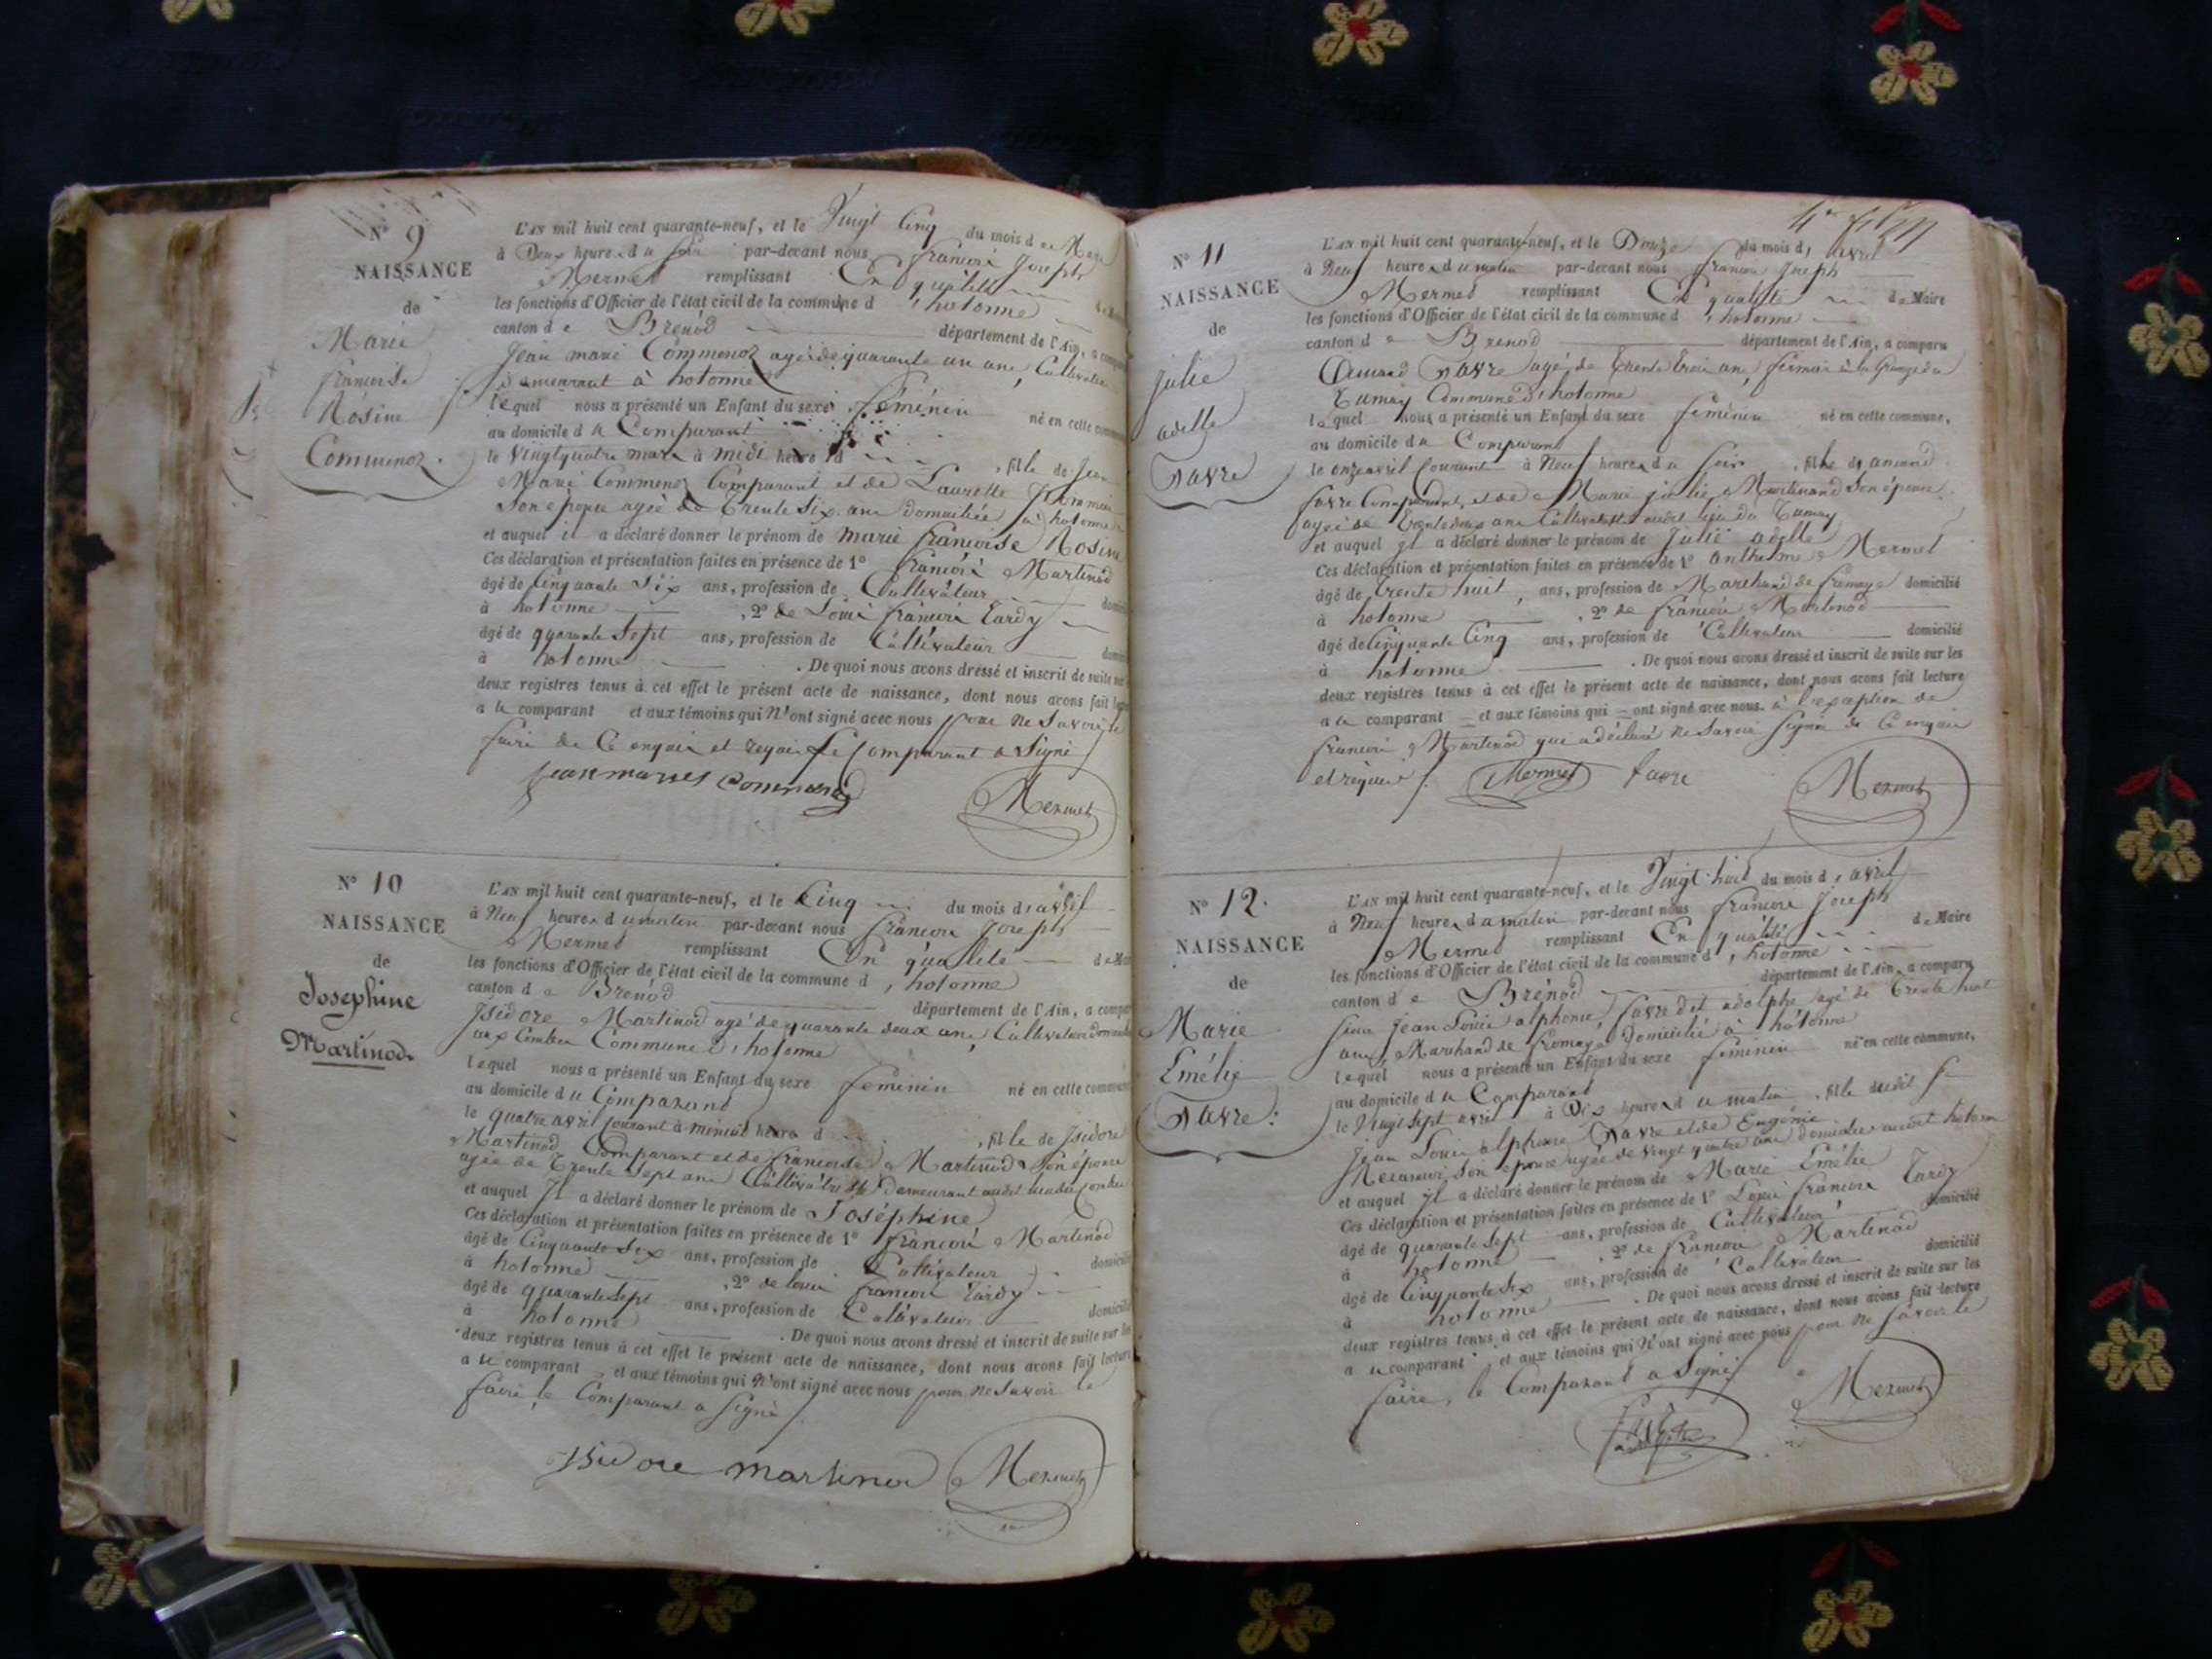 N° 9
NAISSANCE
de
Marie
françoise
Rosine
Commenoz.
L'AN mil huit cent quarante-neuf, et le Vingt Cinq du mois de Mars
à Deux heures du soir par-devant nous françois Joseph
Mermet remplissant En qualité
les fonctions d'Officier de l'état civil de la commune d'hotonne
canton de Brénod département de l'Ain, a
Jean marie Commenoz agé de quarante un ans, Cultivateur
demeurant à hotonne
lequel nous a présenté un Enfant du sexe féminin né en cette
au domicile du Comparant
le Vingtquatre mars à midi heure d , fille de Jean
Marie Commenoz Comparant et de Laurette
Son épouse agée de Trente Six ans domiciliée à hotonne
et auquel il a déclaré donner le prénom de marie françoise Rosine
Ces déclaration et présentation faites en présence de 1° françois Martinod
âgé de Cinquante Six ans, profession de Cultivateur
à hotonne , 2° de Louis françois Tardy
âgé de quarante Sept ans, profession de Cultivateur
à hotonne . De quoi nous avons dressé et inscrit de suite sur
deux registres tenus à cet effet le présent acte de naissance, dont nous avons fait
au comparant et aux témoins qui N'ont signé avec nous pour ne Savoir le
faire de Ce enquis et requis Le Comparant a Signé
Mermet
N° 10
NAISSANCE
de
Josephine
Martinod.
L'AN mil huit cent quarante-neuf, et le Cinq du mois d'avril
à Neuf heures du matin par-devant nous françois Joseph
Mermet remplissant En qualité
les fonctions d'Officier de l'état civil de la commune d'hotonne
canton de Brénod département de l'Ain, a
Isidore Martinod agé de quarante deux ans, Cultivateur
aux Combes Commune d'hotonne
lequel nous a présenté un Enfant du sexe féminin né en cette commune
au domicile du Comparant
le quatre avril Courant à minuit heure d , fille de Isidore
Martinod Comparant et de françoise Martinod Son épouse
agée de Trente Sept ans Cultivatrice demeurant audit lieu
et auquel Il a déclaré donner le prénom de Joséphine
Ces déclaration et présentation faites en présence de 1° françois Martinod
âgé de Cinquante Six ans, profession de Cultivateur
à hotonne , 2° de Louis françois Tardy
âgé de quarante Sept ans, profession de Cultivateur
à hotonne . De quoi nous avons dressé et inscrit de suite sur les
deux registres tenus à cet effet le présent acte de naissance, dont nous avons fait lecture
au comparant et aux témoins qui N'ont signé avec nous pour ne Savoir le
faire, le Comparant a Signé
Isidore martinod Mermet
N° 11
NAISSANCE
de
Julie
adelle
favre
L'AN mil huit cent quarante-neuf, et le Douze du mois d'avril
à Neuf heures du matin par-devant nous françois Joseph
Mermet remplissant En qualité de Maire
les fonctions d'Officier de l'état civil de la commune d'hotonne
canton de Brenod département de l'Ain, a comparu
Amand favre agé de Trente Trois ans, fermier à la Grange du
Tumay Commune d'hotonne
lequel nous a présenté un Enfant du sexe féminin né en cette commune,
au domicile du Comparant
le onze avril Courant à Neuf heures du Soir , fille de amand
favre Comparant, et de Marie julie Martinand Son épouse
agée de Trente deux ans Cultivatrice audit lieu du Tumay
et auquel Il a déclaré donner le prénom de Julie adelle
Ces déclaration et présentation faites en présence de 1° anthelme Mermet
âgé de Trente huit, ans, profession de Marchand de fromage domicilié
à hotonne , 2° de françois Martinod
âgé de Cinquante Cinq ans, profession de Cultivateur domicilié
à hotonne . De quoi nous avons dressé et inscrit de suite sur les
deux registres tenus à cet effet le présent acte de naissance, dont nous avons fait lecture
au comparant et aux témoins qui ont signé avec nous. à l'exception de
françois Martinod qui a déclaré ne Savoir Signer de Ce enquis
et requis. Mermet favre Mermet
N° 12.
NAISSANCE
de
Marie
Emélie
favre.
L'AN mil huit cent quarante-neuf, et le Vingt-huit du mois d'avril
à Neuf heures du matin par-devant nous françois Joseph
Mermet remplissant En qualité de Maire
les fonctions d'Officier de l'état civil de la commune d'hotonne
canton de Brénod département de l'Ain, a comparu
Jean Louis alphonse favre dit adolphe agé de Trente huit
ans, Marchand de fromage domicilié à hotonne
lequel nous a présenté un Enfant du sexe féminin né en cette commune,
au domicile du Comparant
le Vingt Sept avril à Dix heures du matin , fille dudit
jean Louis alphonse favre et de Eugénie
Son épouse agée de Vingt quatre ans domiciliée audit hotonne
et auquel Il a déclaré donner le prénom de Marie Emélie
Ces déclaration et présentation faites en présence de 1° Louis françois Tardy
âgé de quarante Sept ans, profession de Cultivateur domicilié
à hotonne , 2° de françois Martinod
âgé de Cinquante Six ans, profession de Cultivateur domicilié
à hotonne . De quoi nous avons dressé et inscrit de suite sur les
deux registres tenus à cet effet le présent acte de naissance, dont nous avons fait lecture
au comparant et aux témoins qui N'ont signé avec nous pour ne Savoir le
faire, le Comparant a Signé
Mermet